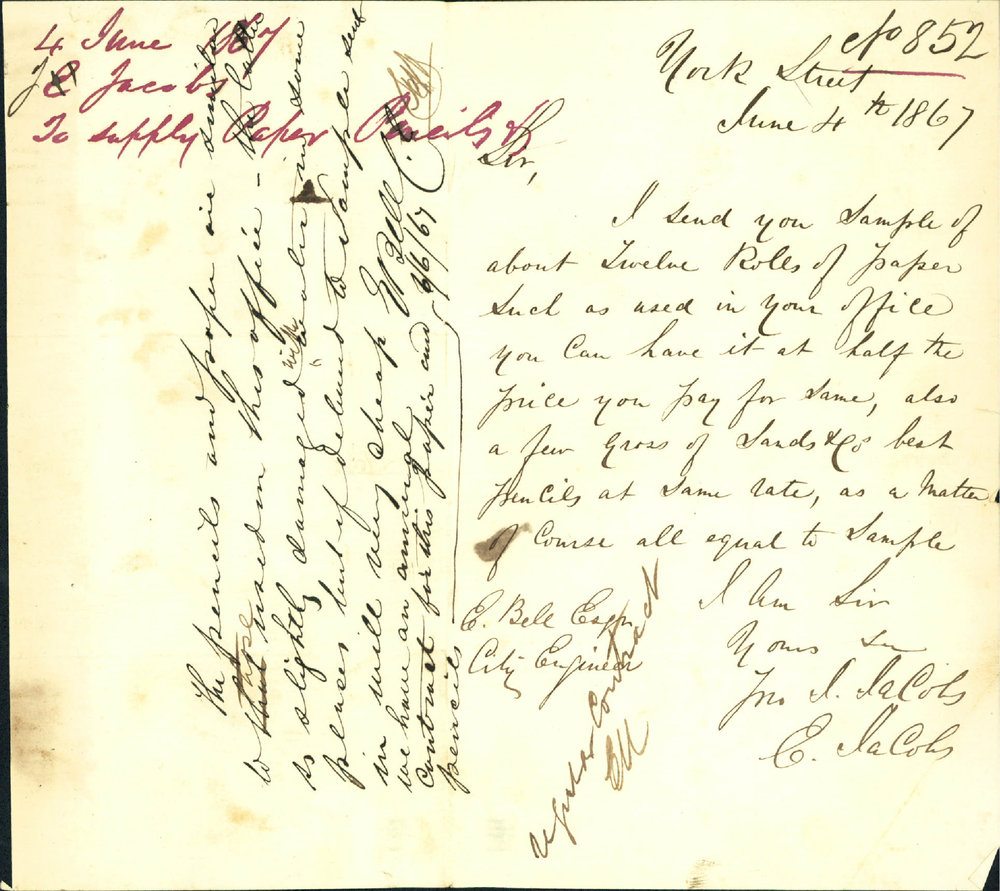 4 June 1867
J E Jacobs
To supply Paper Pencils &c
No 852
York Street
June 4th 1867
Sir,
I send you Sample of
about Twelve Roles of paper
Such as used in Your office
you Can have it at half the
price you pay for Same, also
a few Gross of Sands & Co best
pencils at Same rate, as a Matter
of Course all equal to Sample
I Am Sir
Yours
Jno I. Jacobs
E. Jacobs
E. Bell Esqr
City Engineer
The pencils and paper are similar
to those used in this office - the latter
is slightly damaged with in some
places but if delivered to sample sent
in will very cheap W Bell
we have an annual
contract for this paper and 6/6/67
pencils
under Contract